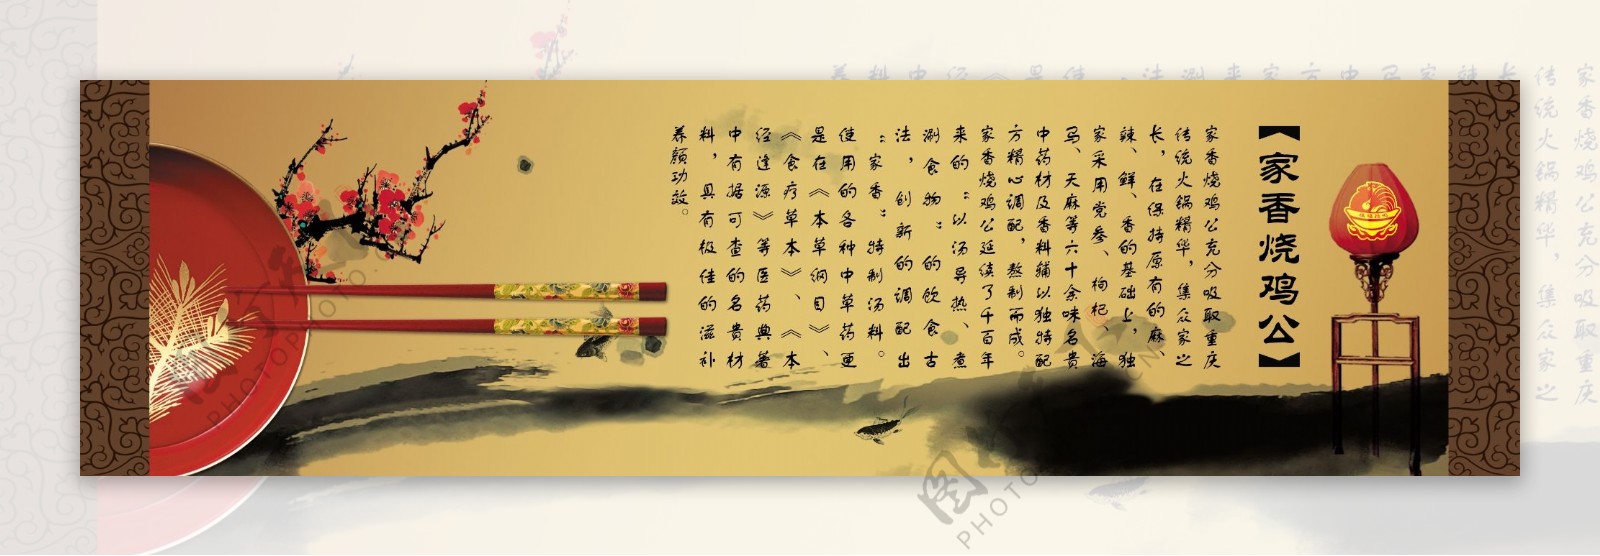 【家香烧鸡公】
家香烧鸡公充分吸取重庆
传统火锅精华，集众家之
长，在保持原有的麻、
辣、鲜、香的基础上，独
家采用党参、枸杞、海
马、天麻等六十余味名贵
中药材及香料辅以独特配
方精心调配，熬制而成。
家香烧鸡公延续了千百年
来的“以汤导热、煮
涮食物”的饮食古
法，创新的调配出
“家香”特制汤料。
使用的各种中草药更
是在《本草纲目》、
《食疗草本》、《本
经逢源》等医药典著
中有据可查的名贵材
料，具有极佳的滋补
养颜功效。